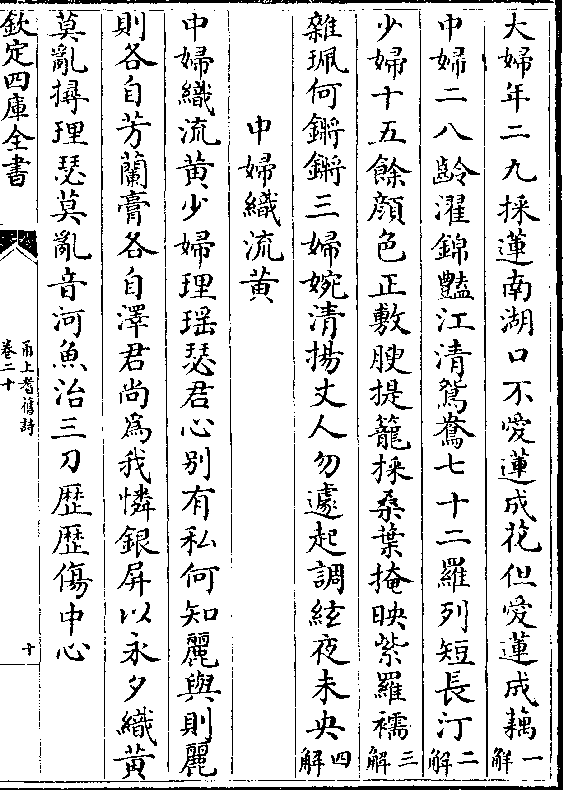 大婦年二九採蓮南湖口不愛蓮成花但愛蓮成藕一解
中婦二八齡濯錦豔江清鴛鴦七十二羅列短長汀二解
少婦十五餘顔色正敷腴提籠採桑葉掩映紫羅襦三解
雜珮何鏘鏘三婦婉清揚丈人勿遽起調絃夜未央四解
中婦織流黄
中婦織流黄少婦理瑶瑟君心别有私何知麗與則麗
則各自芳蘭膏各自澤君尚爲我憐銀屏以永夕織黄
莫亂㨶理瑟莫亂音河魚治三刀歴歴傷中心
欽定四庫全書
甬上耆舊詩
卷二十
十